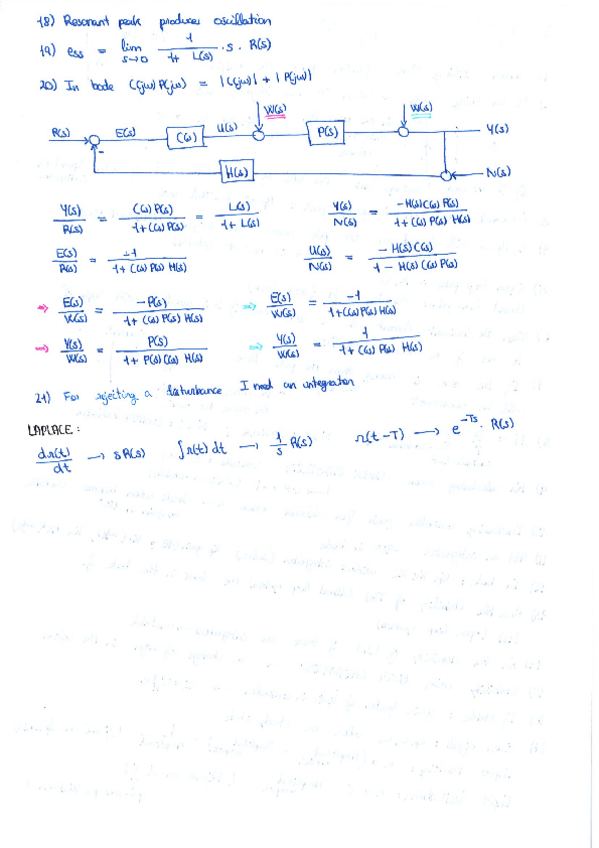 18) Resonant peak produces oscillation
19) ess = lim s→0 1 / (1 + L(s)) · s · R(s)
20) In bode C(jω)P(jω) = |C(jω)| + |P(jω)|
W(s) W(s)
R(s) E(s) C(s) U(s) P(s) Y(s)
-
H(s) N(s)
Y(s)/R(s) = C(s) P(s) / (1 + C(s) P(s)) = L(s) / (1 + L(s)) Y(s)/N(s) = -H(s) C(s) P(s) / (1 + C(s) P(s) H(s))
E(s)/R(s) = 1 / (1 + C(s) P(s) H(s)) U(s)/N(s) = -H(s) C(s) / (1 - H(s) C(s) P(s))
⇒ E(s)/W(s) = -P(s) / (1 + C(s) P(s) H(s)) ⇒ E(s)/W(s) = -1 / (1 + C(s) P(s) H(s))
⇒ Y(s)/W(s) = P(s) / (1 + P(s) C(s) H(s)) ⇒ Y(s)/W(s) = 1 / (1 + C(s) P(s) H(s))
21) For rejecting a disturbance I need an integrator
LAPLACE:
dr(t)/dt → s R(s) ∫ r(t) dt → 1/s R(s) r(t-T) → e^-Ts · R(s)